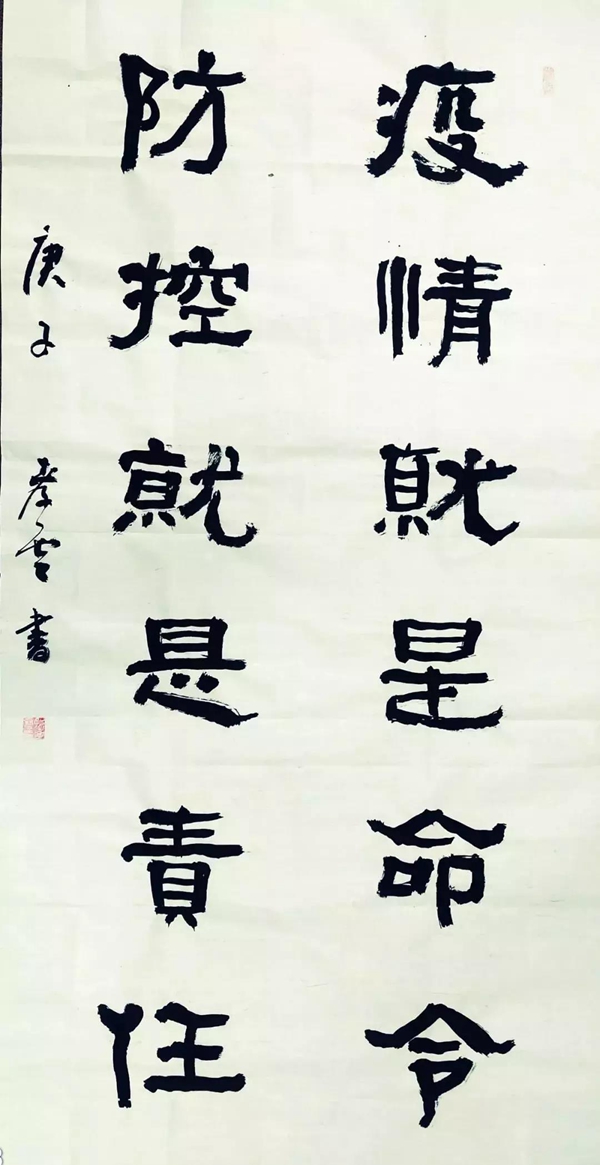 疫情就是命令
防控就是責任
庚子 孝雲書